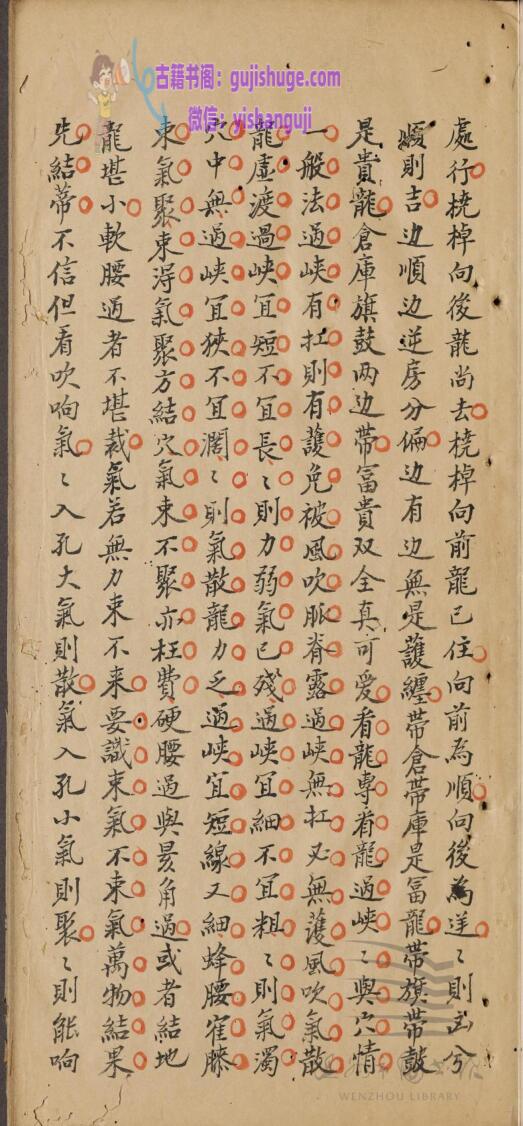 古籍书阁：gujishuge.com
微信：yishanguji
處行橈棹向後龍尚去橈棹向前龍已住向前為順向後為逆〻則凶兮
順則吉边順边逆房分偏边有边無是護纏帶倉帶庫是富龍帶旗帶鼓
是貴龍倉庫旗鼓两边帶富貴双全真可愛看龍專看龍過峽〻與穴情
一般法過峽有扛則有護免被風吹脈脊露過峽無扛必無護風吹氣散
龍虛渡過峽宜短不宜長〻則力弱氣已殘過峽宜細不宜粗〻則氣濁
穴中無過峽宜狹不宜濶〻則氣散龍力乏過峽宜短線又細蜂腰寉膝
束氣聚束淂氣聚方結穴氣束不聚亦枉費硬腰過與昙角過或者結地
龍堪小軟腰過者不堪裁氣若無力束不来要識束氣不束氣萬物結果
先結蒂不信但看吹响氣〻入孔大氣則散氣入孔小氣則聚〻則能响
WENZHOU LIBRARY